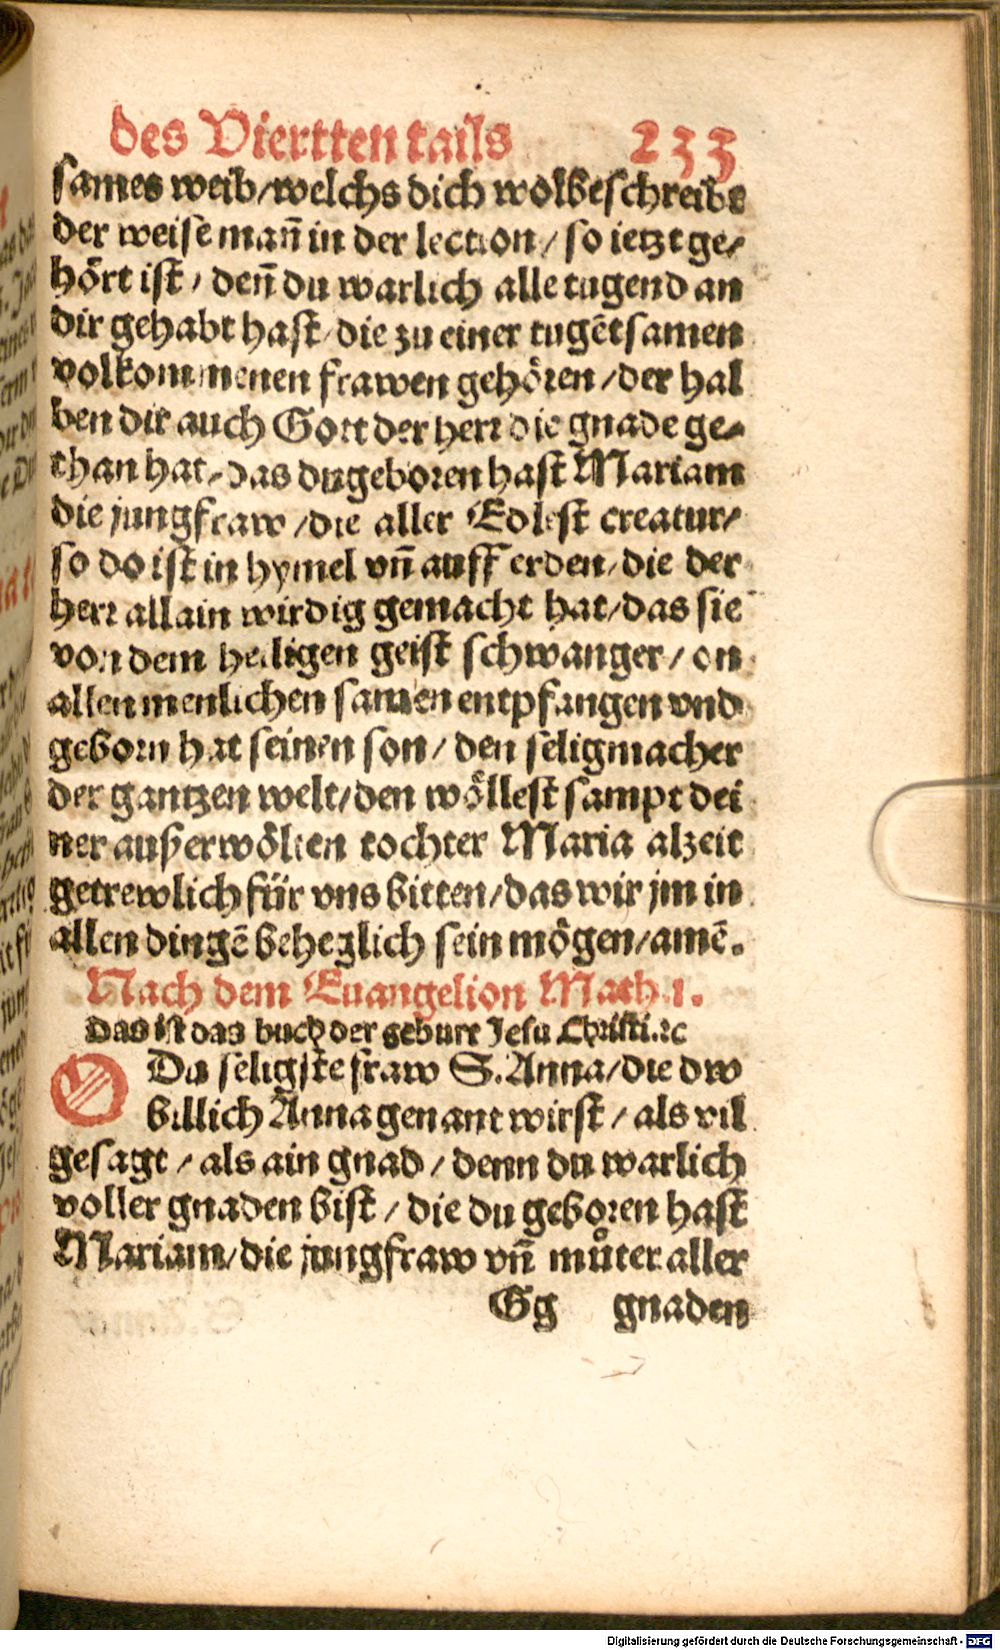 des Viertten tails 233
sames weib/welchs dich wolbeschreibt
der weise mañ in der lection/so ietzt ge-
hört ist/ deñ du warlich alle tugend an
dir gehabt hast/die zu einer tugẽtsamen
volkommenen frawen gehören/der hal
ben dir auch Gott der herr die gnade ge-
than hat/das du geboren hast Mariam
die jungfraw/die aller Edlest creatur/
so do ist in hymel vñ auff erden/die der
herr allain wirdig gemacht hat/das sie
von dem heiligen geist schwanger/on
allen menlichen samen entpfangen vnd
geborn hat seinen son/den seligmacher
der gantzen welt/den wöllest sampt dei
ner außerwölten tochter Maria alzeit
getrewlich für vns bitten/das wir jm in
allen dingẽ beheglich sein mögen/amẽ.
Nach dem Euangelion Math.1.
Das ist das buch der geburt Jesu Christi.ꝛc
O Du seligste fraw S.Anna/die dw
billich Anna genant wirst/als vil
gesagt/als ain gnad/denn du warlich
voller gnaden bist/die du geboren hast
Mariam/die jungfraw vñ můter aller
Gg gnaden
Digitalisierung gefördert durch die Deutsche Forschungsgemeinschaft - DFG